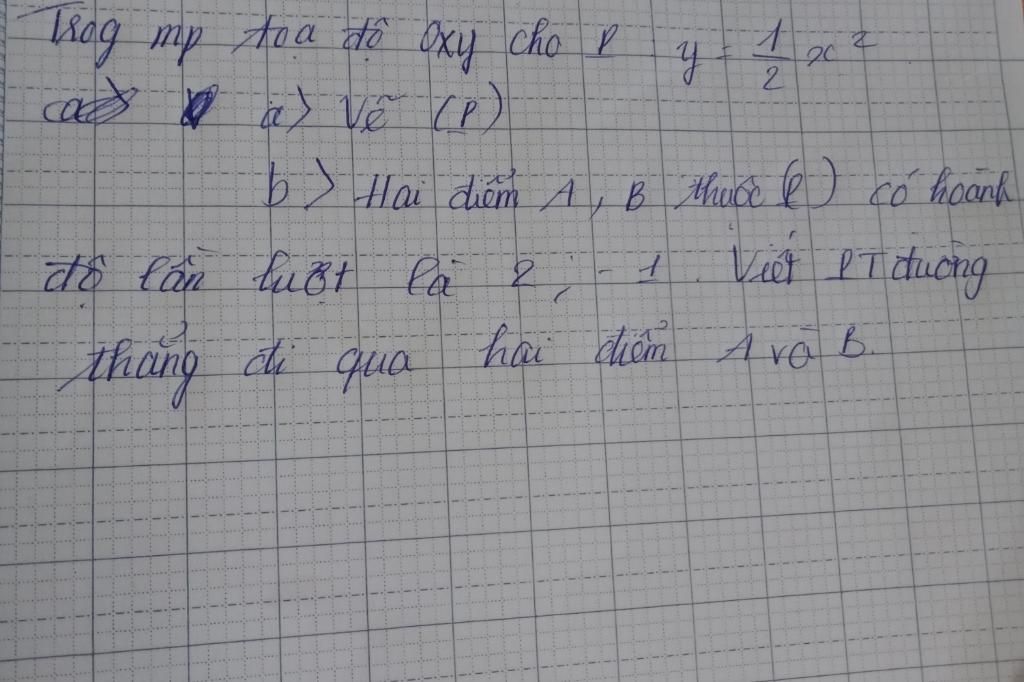 Trog mp tọa độ Oxy cho P y = 1/2 x²
a> Vẽ (P)
b> Hai điểm A, B thuộc (P) có hoành
độ lần lượt là 2; -1. Viết PT đường
thẳng đi qua hai điểm A và B.